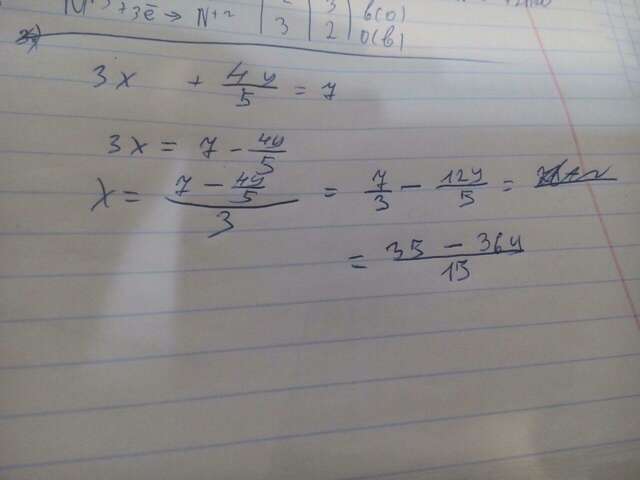 +3ē → N⁺² | 3 | 2 | в(о) о(в)
3x + 4y/5 = 7
3x = 7 - 4y/5
x = (7 - 4y/5)/3 = 7/3 - 12y/5 =
= (35 - 36y)/15